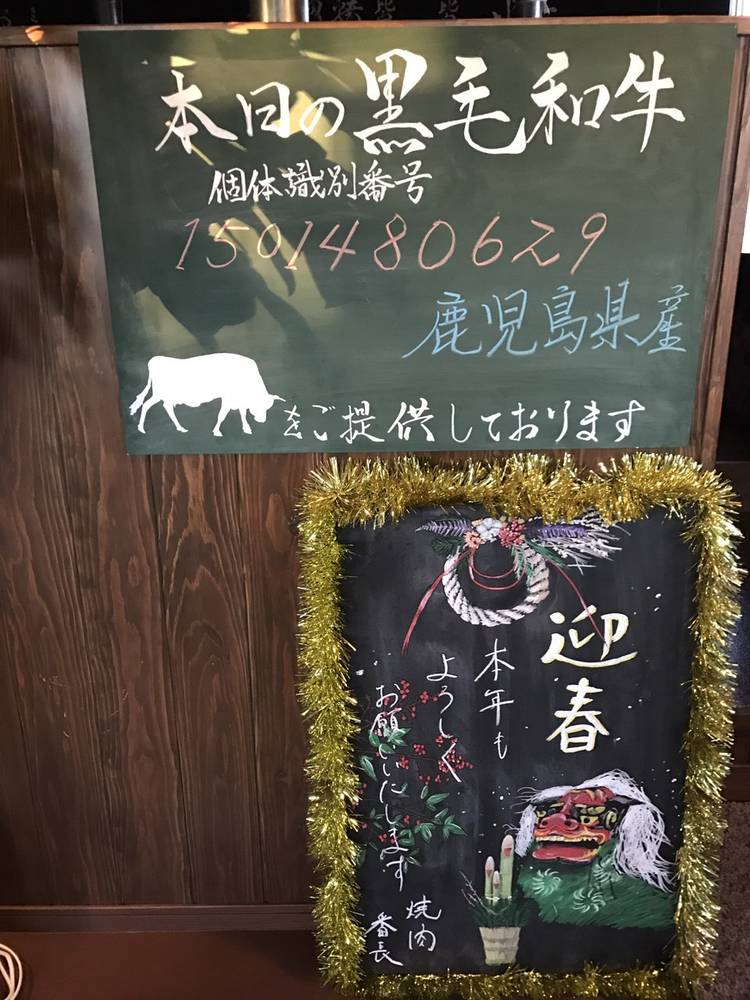 本日の黒毛和牛
個体識別番号
1501480629
鹿児島県産
をご提供しております
迎春
本年も
よろしく
お願いにします
焼肉
番長